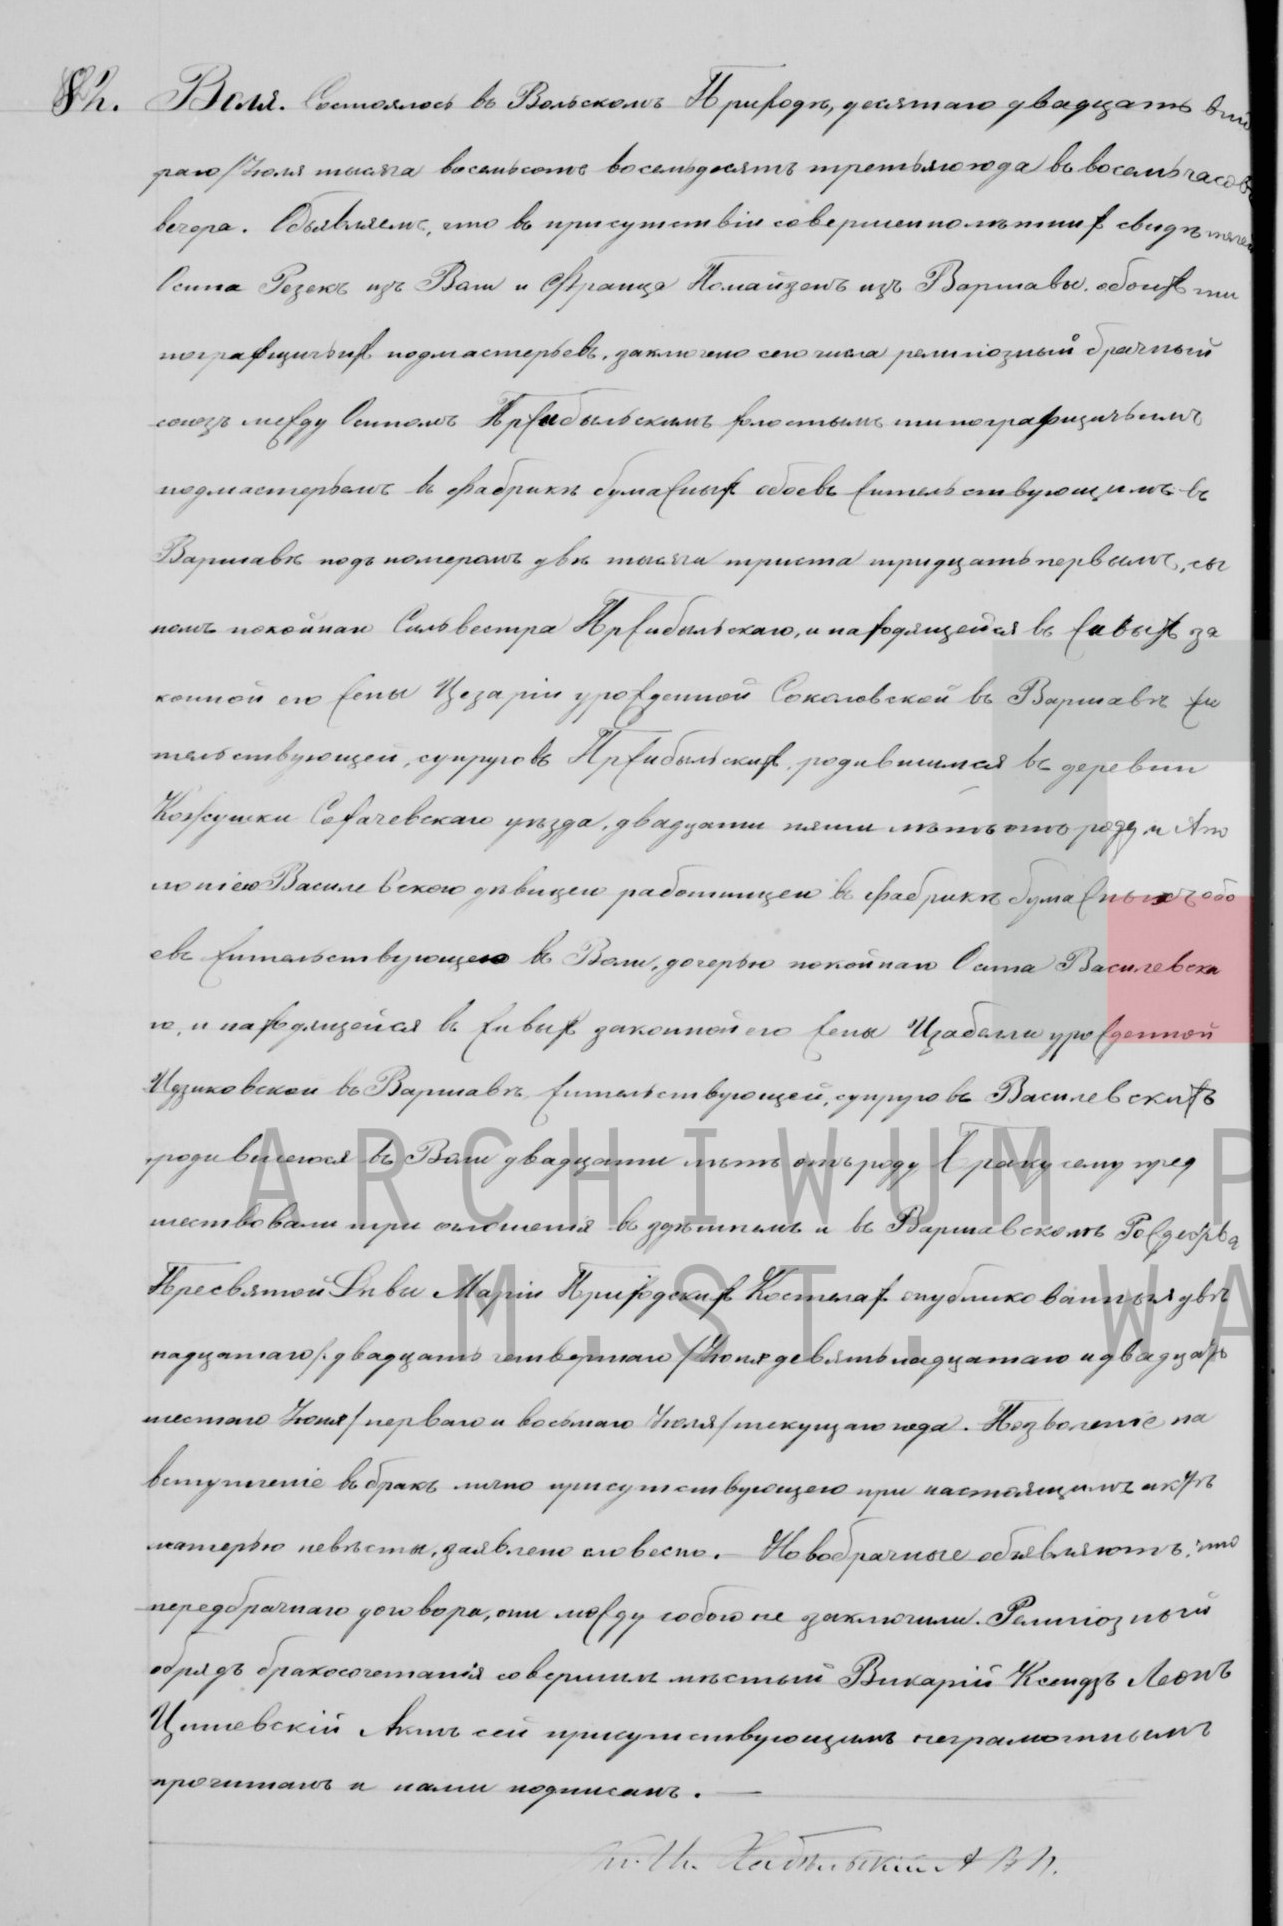 82. Воля. Состоялось въ Вольскомъ Приходѣ, десятаго двадцать вто
раго/Іюля тысяча восемьсотъ восемьдесятъ третьяго года въ восемь часовъ
вечера. Объявляемъ, что въ присутствіи совершеннолѣтних свидѣтелей
Осипа Резекъ изъ Воли и Франца Помайзенъ изъ Варшавы. обоихъ ти
пографицичьихъ подмастерьевъ, заключено сего числа религіозный брачный
союзъ между Осипомъ Пржибыльскимъ холостымъ типографицичьимъ
подмастерьемъ въ фабрикѣ бумажных обоевъ жительствующимъ въ
Варшавѣ подъ номеромъ двѣ тысячи триста тридцать первымъ, сы
номъ покойнаго Сильвестра Пржибыльскаго, и находящейся въ живыхъ за
конной его жены Цезаріи урожденной Соколовской въ Варшавѣ жи
тельствующей, супруговъ Пржибыльских, родившимся въ деревни
Кожушки Сохачевскаго уѣзда, двадцати пяти лѣтъ отъ роду, и Апо
лоніею Василевскою дѣвицею работницею въ фабрикѣ бумажныхъ обо
евъ жительствующею въ Воли, дочерью покойнаго Осипа Василевска
го, и находящейся въ живых законной его жены Изабелли урожденной
Идзиковской въ Варшавѣ жительствующей, супруговъ Василевскихъ
родившеюся въ Воли двадцати лѣтъ отъ роду Браку сему пред
шествовали три оглошенія въ здѣшнемъ и въ Варшавскомъ Рождества
Пресвятой Дѣвы Маріи Приходских Костелах опубликованныя двѣ
надцатаго/двадцать четвертаго/Іюня девятьнадцатаго и двадцать
шестаго Іюня/перваго и восьмаго Іюля/текущаго года. Позволеніе на
вступленіе въ бракъ лично присутствующею при настоящимъ актѣ
матерью невѣсты, заявлено словесно. — Новобрачные объявляютъ, что
передбрачнаго договора, они между собою не заключили. Религіозный
обрядъ бракосочетанія совершилъ мѣстный Викарій Ксендзъ Леонъ
Цишевскій Актъ сей присутствующимъ неграмотнымъ
прочитанъ и нами подписанъ. —
ARCHIWUM P
M.ST. WA